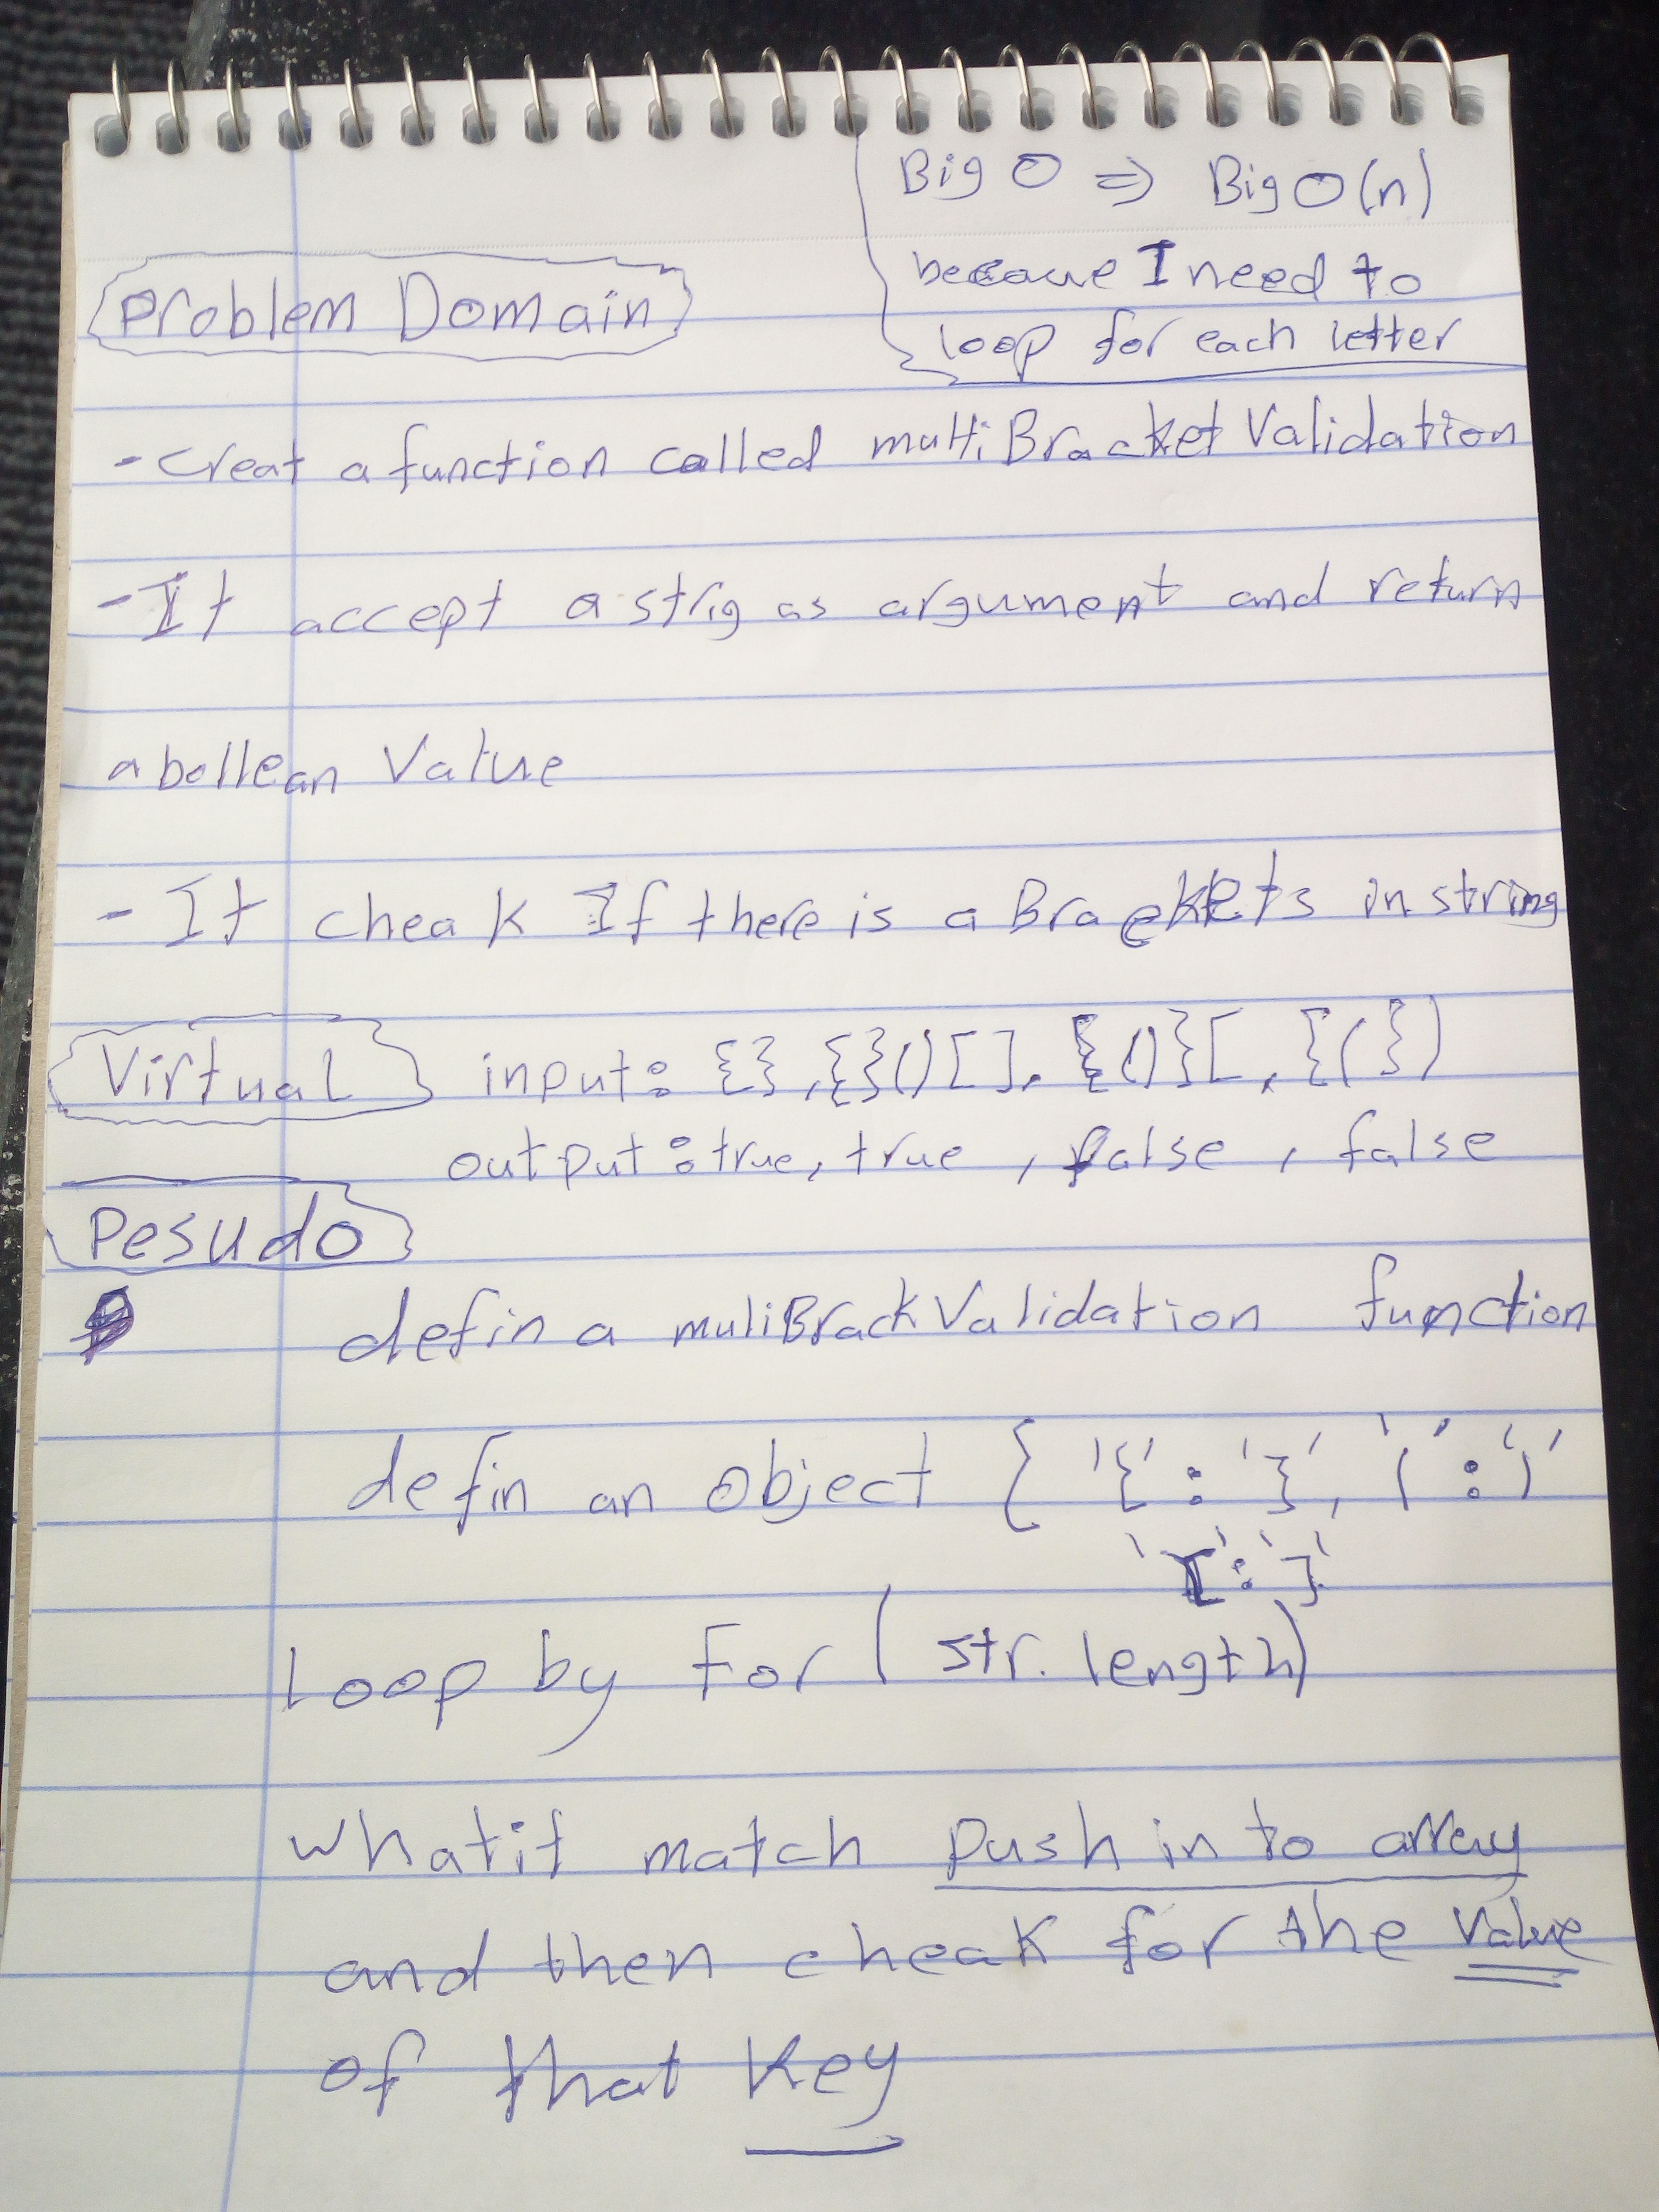 Big O => Big O(n)
becaue I need to
loop for each letter
Problem Domain
- creat a function called multiBracketValidation
- It accept a strig as argument and return
a bollean Value
- It cheak If there is a Brackets in string
Virtual input: {}, {}()[], {()}[, {(})
output: true, true, false, false
Pesudo
defin a muliBrackValidation function
defin an object { '{' : '}', '(' : ')'
'[' : ']'
Loop by For (str.length)
what if match push in to array
and then cheak for the value
of that key